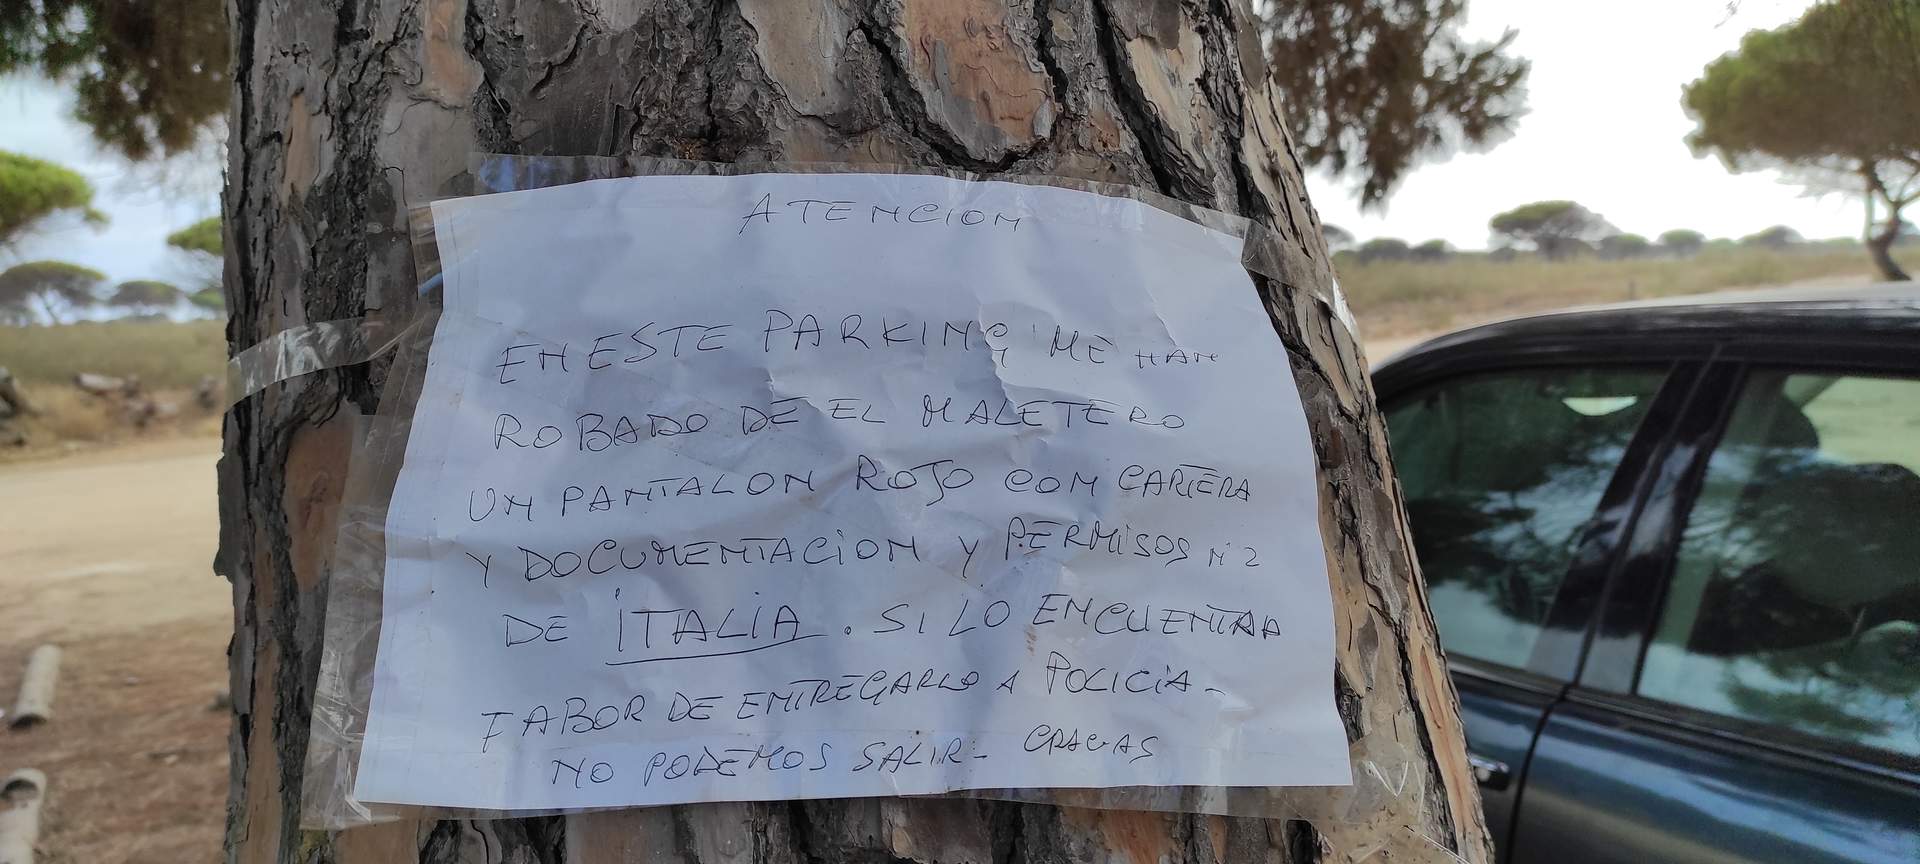 ATENCION
EN ESTE PARKING ME HAN
ROBADO DE EL MALETERO
UN PANTALON ROJO CON CARTERA
Y DOCUMENTACION Y PERMISOS
DE ITALIA. SI LO ENCUENTRA
FABOR DE ENTREGARLO A POLICIA-
NO PODEMOS SALIR- GRACIAS